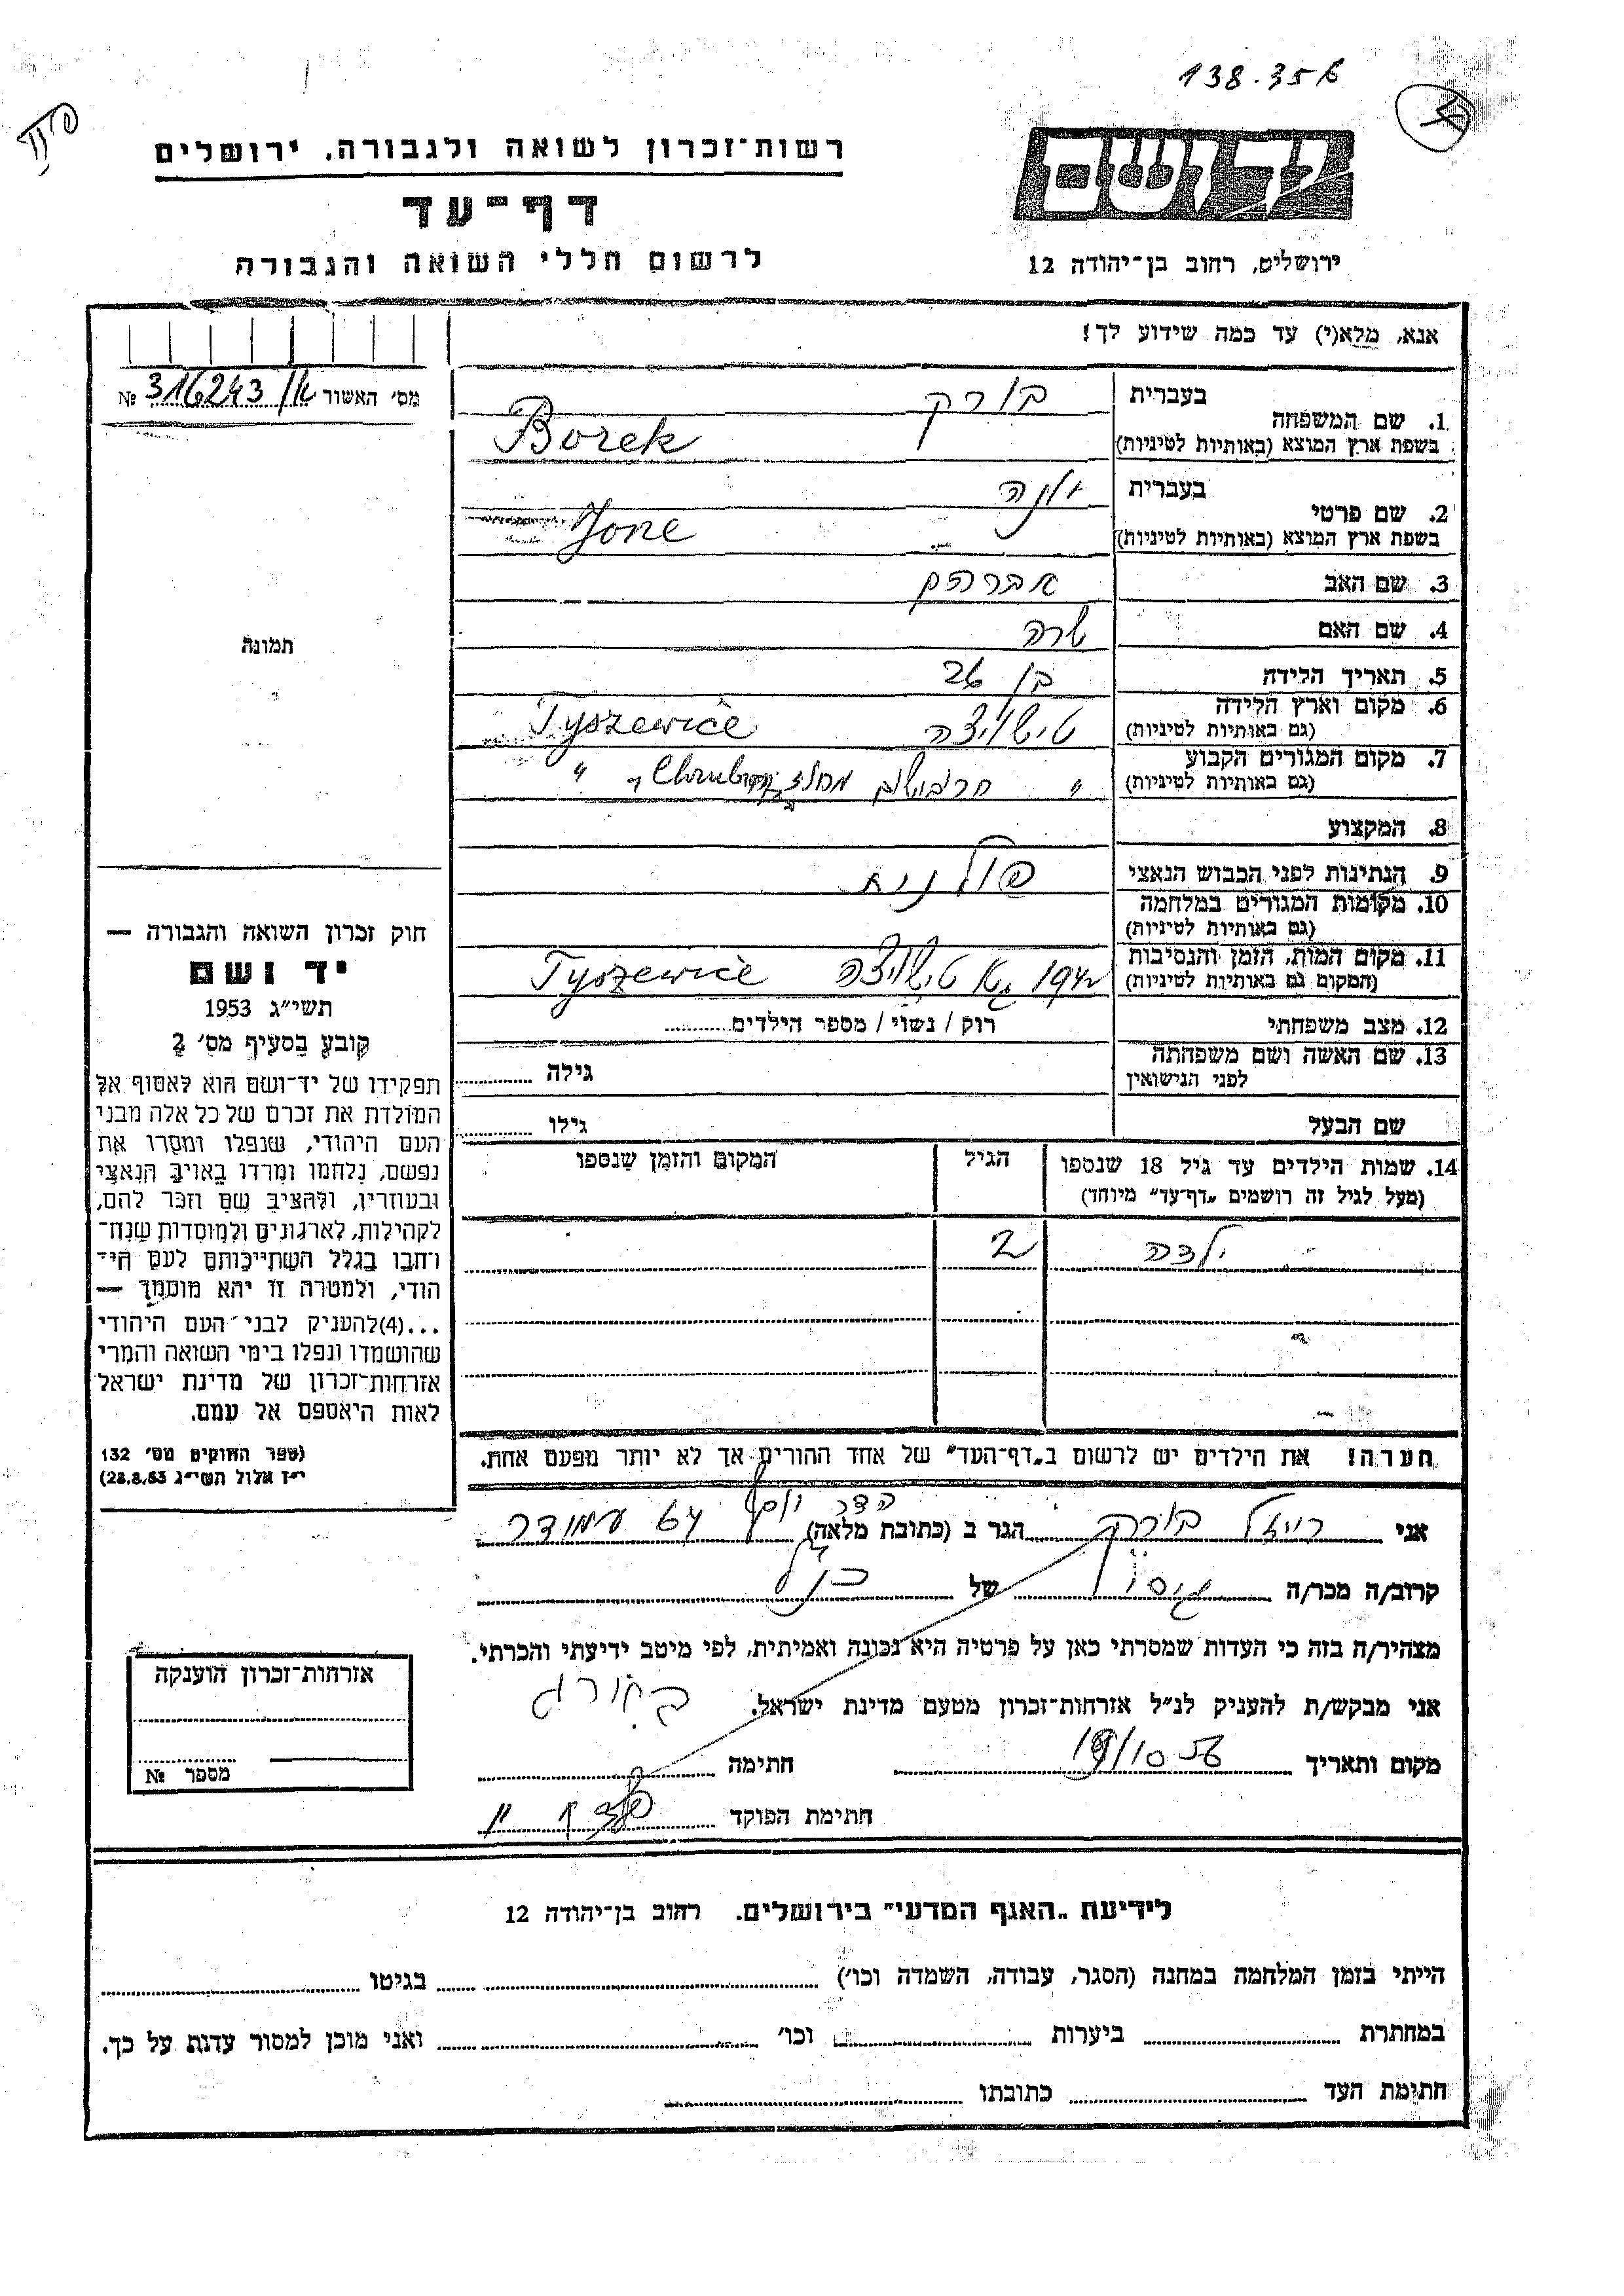 138.356
רשות־זכרון לשואה ולגבורה, ירושלים
יד ושם
דף־עד
לרשום חללי השואה והגבורה
ירושלים, רחוב בן־יהודה 12
אנא, מלא(י) עד כמה שידוע לך!
מס׳ האשור № 316243
1. שם המשפחה
בעברית בורק
בשפת ארץ המוצא (באותיות לטיניות) Borek
2. שם פרטי
בעברית יונה
בשפת ארץ המוצא (באותיות לטיניות) Jone
3. שם האב אברהם
4. שם האם שרה
5. תאריך הלידה בן 26
6. מקום וארץ הלידה
(גם באותיות לטיניות) טישויצה Tyszewice
7. מקום המגורים הקבוע
(גם באותיות לטיניות) " "
8. המקצוע
9. הנתינות לפני הכבוש הנאצי פולנית
10. מקומות המגורים במלחמה
(גם באותיות לטיניות)
11. מקום המות, הזמן והנסיבות
(המקום גם באותיות לטיניות) 1942 טישויצה Tyszewice
12. מצב משפחתי רוק / נשוי / מספר הילדים
13. שם האשה ושם משפחתה
לפני הנישואין גילה
שם הבעל גילו
14. שמות הילדים עד גיל 18 שנספו הגיל המקום והזמן שנספו
(מעל לגיל זה רושמים „דף־עד״ מיוחד)
ילדה 2
הערה! את הילדים יש לרשום ב„דף־העד״ של אחד ההורים אך לא יותר מפעם אחת.
תמונה
חוק זכרון השואה והגבורה —
יד ושם
תשי״ג 1953
קובע בסעיף מס׳ 2
תפקידו של יד־ושם הוא לאסוף אל
המולדת את זכרם של כל אלה מבני
העם היהודי, שנפלו ומסרו את
נפשם, נלחמו ומרדו באויב הנאצי
ובעוזריו, ולהציב שם וזכר להם,
לקהילות, לארגונים ולמוסדות שנח־
רבו בגלל השתייכותם לעם הי־
הודי, ולמטרה זו יהא מוסמך —
...(4)להעניק לבני העם היהודי
שהושמדו ונפלו בימי השואה והמרי
אזרחות־זכרון של מדינת ישראל
לאות היאספם אל עמם.
(ספר החוקים מס׳ 132
י״ז אלול תשי״ג 28.8.53)
אני רויזל בורק הגר ב (כתובת מלאה) הדר יוסף 64 עמידר
קרוב/ה מכר/ה גיסו של הנ״ל
מצהיר/ה בזה כי העדות שמסרתי כאן על פרטיה היא נכונה ואמיתית, לפי מיטב ידיעתי והכרתי.
אני מבקש/ת להעניק לנ״ל אזרחות־זכרון מטעם מדינת ישראל.
מקום ותאריך 19/10 56 חתימה
חתימת הפוקד
אזרחות־זכרון הוענקה
מספר №
לידיעת „האגף המדעי״ בירושלים. רחוב בן־יהודה 12
הייתי בזמן המלחמה במחנה (הסגר, עבודה, השמדה וכו׳) בגיטו
במחתרת ביערות וכו׳ ואני מוכן למסור עדות על כך.
חתימת העד כתובתו